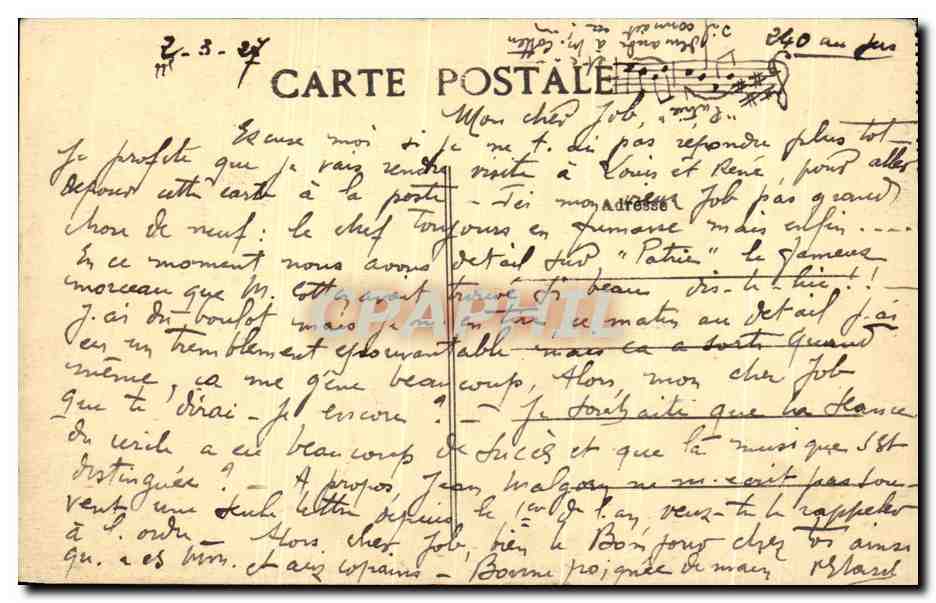 2-3-27
240 au jus
CARTE POSTALE
"Patrie"
Mon cher Job,
Excuse moi si je ne t. ai pas répondu plus tôt
Je profite que je vais rendre visite à Louis et René, pour aller
déposer cette carte à la poste - Ici mon vieux Job pas grand
Adresse
chose de neuf : le chef toujours en fumasse mais enfin ....
En ce moment nous avons détail sur "Patrie" le fameux
morceau que M. Cotten avait trouvé si beau dis-le-lui !!
J'ai du boulot mais je m'en tire ce matin au détail j'ai
eu un tremblement épouvantable mais ça a sorti quand
même, ça me gêne beaucoup, Alors, mon cher Job
que te dirai-je encore ? - Je souhaite que la séance
du cercle a eu beaucoup de succès et que la musique s'est
distinguée ? - A propos, Jean Malgorn ne m'écrit pas sou-
vent une seule lettre depuis le 1er de l'an, veux-tu le rappeler
à l'ordre Alors, cher Job, bien le Bonjour chez toi ainsi
qu'à et aux copains - Bonne poignée de main
CPAPHIL